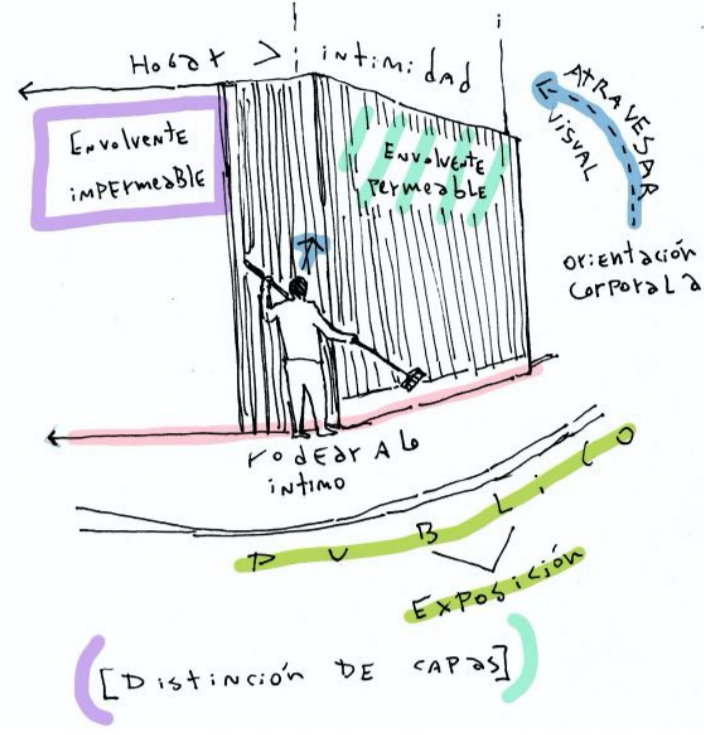 Hogar > intimidad
Envolvente
impermeable
Envolvente
permeable
ATRAVESAR
VISUAL
orientación
corporal a
rodear a lo
íntimo
PUBLICO
Exposición
[Distinción DE CAPAS]